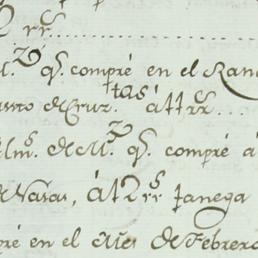 2 rr.s
M.z q.e compré en el Ran
anto de Cruz. á 11 rr.s
Alm.s de M.z q.e compré á
de Navas, á 12 rr.s fanega
pré en el Mes de Febrero